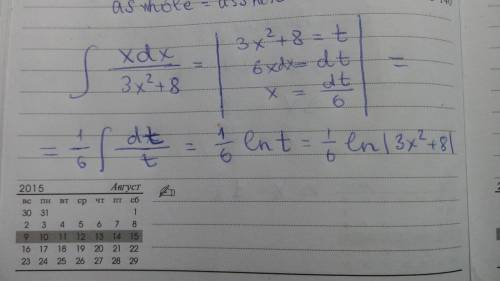 as whole = assh
∫ xdx / 3x²+8 = | 3x²+8 = t
6xdx = dt
x = dt/6 | =
= 1/6 ∫ dt/t = 1/6 ln t = 1/6 ln|3x²+8|
2015 Август
вс пн вт ср чт пт сб
30 31 1
2 3 4 5 6 7 8
9 10 11 12 13 14 15
16 17 18 19 20 21 22
23 24 25 26 27 28 29